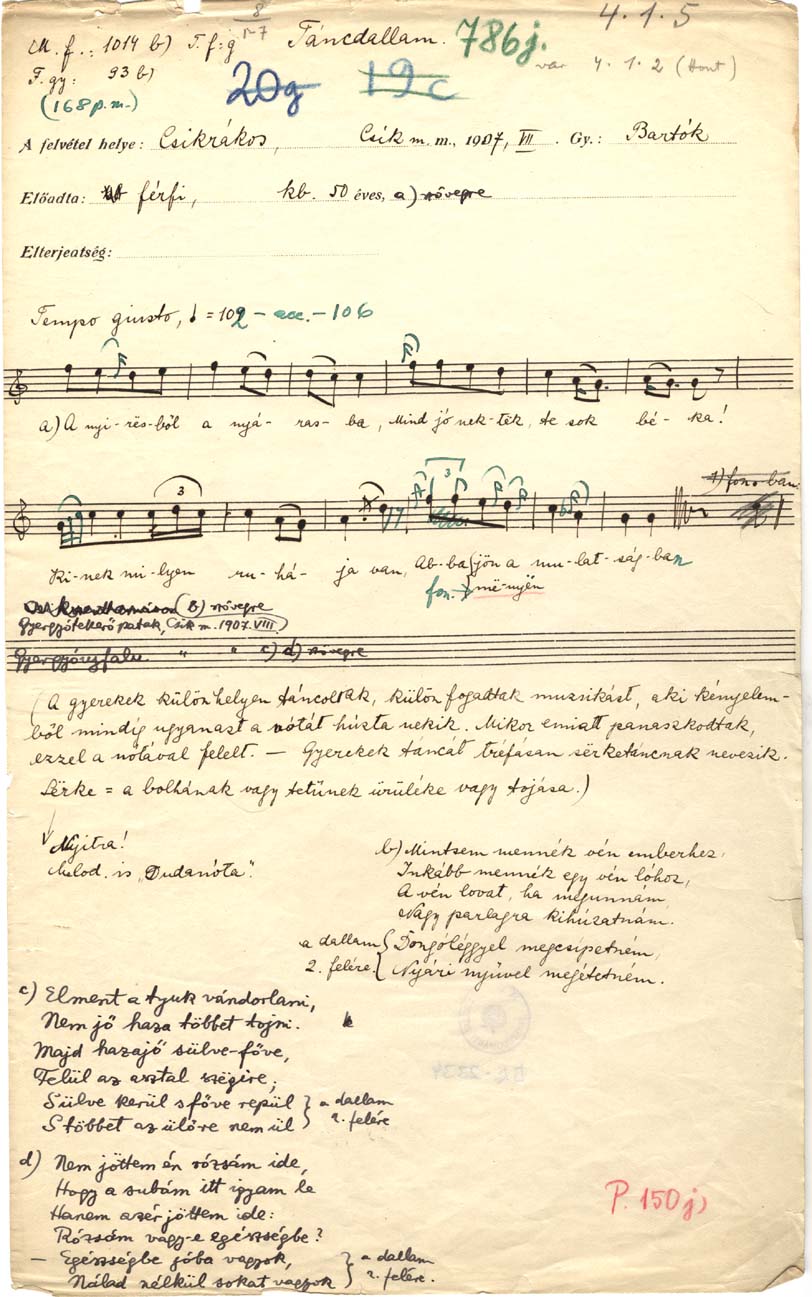 4.1.5
M. f.: 1014 b) T. f: g 8 1-7 Táncdallam. 786j.
var 4.1.2 (Hont)
F. gy: 93 b)
(168 p.m.) 20g 19c
A felvétel helye: Csikrákos, Csík m. m., 1907, VII. Gy.: Bartók
Előadta: férfi, kb. 50 éves, a) szövegre
Elterjedtség:
Tempo giusto, = 102 - acc. - 106
a) A nyi-rës-ből a nyá-ras-ba, Mind jó nek-tëk, te sok bé-ka!
3 3 1) fono-ban
Ki-nek mi-lyen ru-há-ja van, Ab-ba jön a mu-lat-ság-ban
fon. më-nyën
(b) szövegre
Gyergyótekerőpatak, Csik m. 1907. VIII.
Gyergyóujfalu " " c) d) szövegre
(A gyerekek külön helyen táncoltak, külön fogadtak muzsikást, aki kényelem-
ből mindig ugyanazt a nótát húzta nekik. Mikor emiatt panaszkodtak,
ezzel a nótával felelt. — Gyerekek táncát tréfásan sërketáncnak nevezik.
Sërke = a bolhának vagy tetűnek ürüléke vagy tojása.)
Nyitra!
Melod. is „Dudanóta".
b) Mintsem mennék vén emberhez,
Inkább mennék egy vén lóhoz,
A vén lovat, ha megunnám,
Nagy parlagra kihúzatnám.
a dallam 2. felére. { Dongóléggyel megcsipetném,
Nyári nyüvel megétetném.
c) Elment a tyuk vándorlani,
Nem jő haza többet tojni.
Majd hazajő sülve-főve,
Felül az asztal szégire;
Sülve kerül s főve repül } a dallam
S többet az ülőre nem ül } 2. felére
d) Nem jöttem én rózsám ide,
Hogy a subám itt igyam le
Hanem azér jöttem ide:
Rózsám vagy-e egészségbe?
— Egészségbe jóba vagyok, } a dallam
Nálad nélkül sokat vagyok } 2. felére.
P. 150 j)